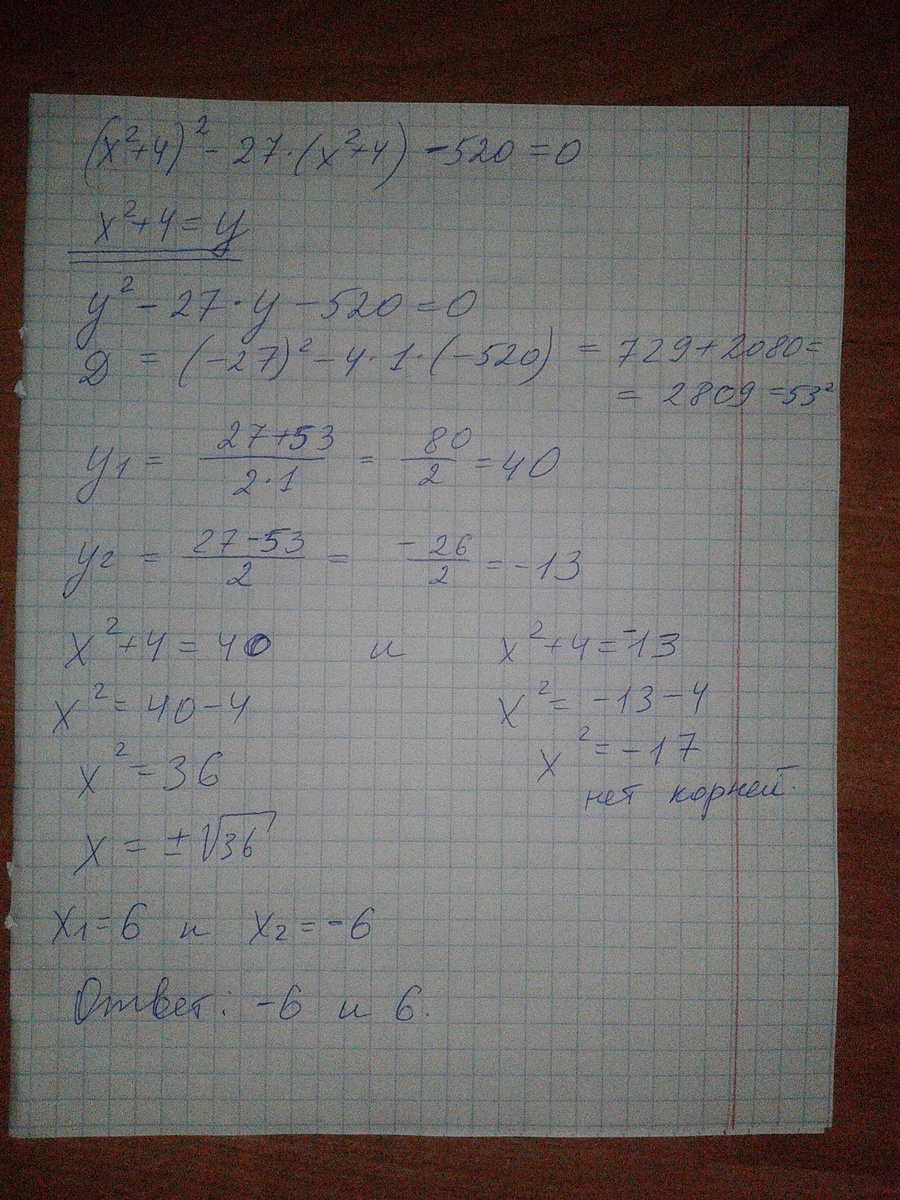 (x²+4)² - 27·(x²+4) - 520 = 0
x²+4 = y
y² - 27·y - 520 = 0
D = (-27)² - 4·1·(-520) = 729+2080=
= 2809 = 53²
y1 = (27+53)/(2·1) = 80/2 = 40
y2 = (27-53)/2 = -26/2 = -13
x²+4 = 40 и x²+4 = -13
x² = 40-4 x² = -13-4
x² = 36 x² = -17
нет корней.
x = ±√36
x1 = 6 и x2 = -6
Ответ: -6 и 6.